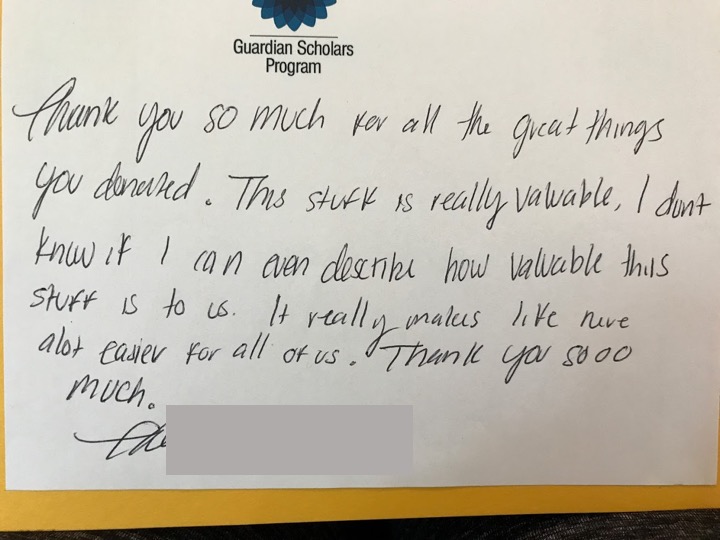 Guardian Scholars
Program
Thank you so much for all the great things
you donated. This stuff is really valuable, I dont
know if I can even describe how valuable this
stuff is to us. It really makes life here
alot easier for all of us. Thank you sooo
much.